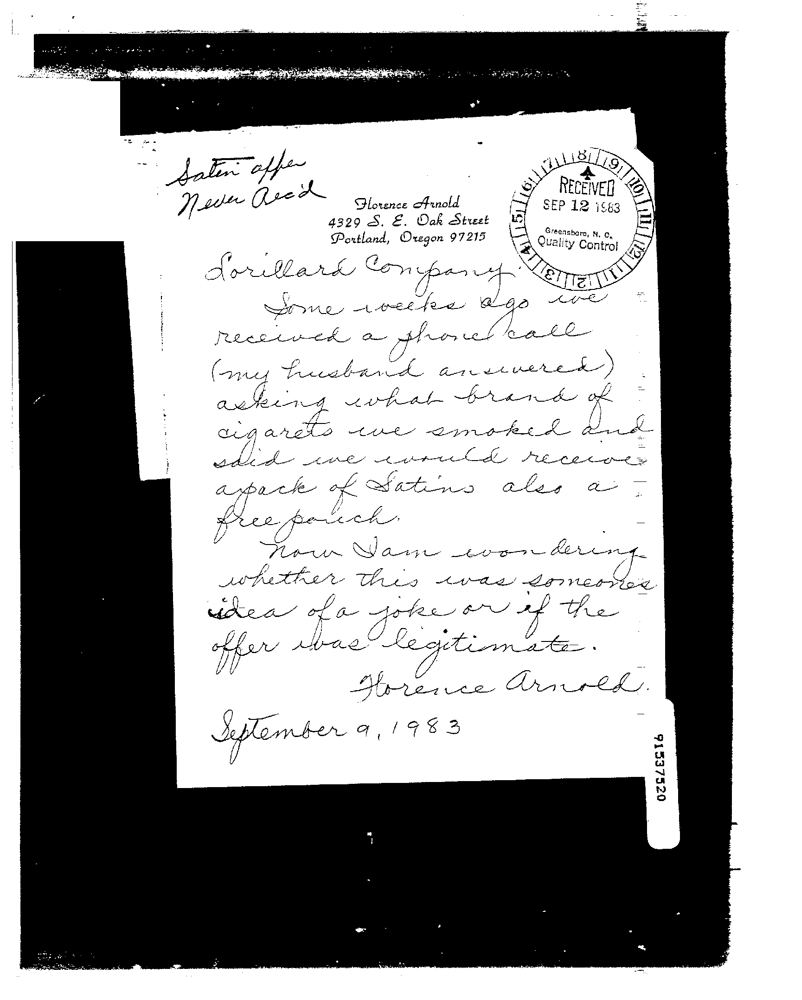 Satin offer
Never Rec'd
Florence Arnold
4329 S. E. Oak Street
Portland, Oregon 97215
RECEIVED
SEP 12 1983
Greensboro, N. C.
Quality Control
5 6 7 8 9 10 11 12 11 12 13 14
Lorillard Company:
Some weeks ago we
received a phone call
(my husband answered)
asking what brand of
cigarets we smoked and
said we would receive
a pack of Satins also a
free pouch.
Now I am wondering
whether this was someones
idea of a joke or if the
offer was legitimate.
Florence Arnold.
September 9, 1983
91537520